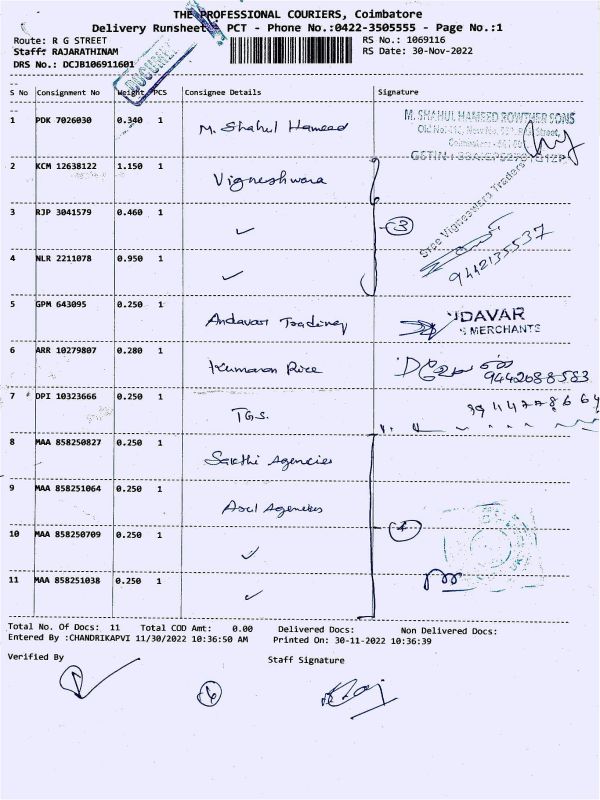 THE PROFESSIONAL COURIERS, Coimbatore
Delivery Runsheet - PCT - Phone No.:0422-3505555 - Page No.:1
Route: R G STREET RS No.: 1069116
Staff: RAJARATHINAM RS Date: 30-Nov-2022
DRS No.: DCJB106911601
DOCUMENT
S No Consignment No Weight PCS Consignee Details Signature
1 PDK 7026030 0.340 1 M. Shahul Hameed M. SHAHUL HAMEED ROWTHER SONS
2 KCM 12638122 1.150 1 Vigneshwara
Sree Vigneswara Traders
3 RJP 3041579 0.460 1 ✓ 3
9442135537
4 NLR 2211078 0.950 1 ✓
5 GPM 643095 0.250 1 Andavar Trading DAVAR
MERCHANTS
6 ARR 10279807 0.280 1 Kumaran Rice 9442088583
7 DPI 10323666 0.250 1 T.G.S.
8 MAA 858250827 0.250 1 Sakthi Agencies
9 MAA 858251064 0.250 1 Agencies
10 MAA 858250709 0.250 1 ✓ 4
11 MAA 858251038 0.250 1 ✓
Total No. Of Docs: 11 Total COD Amt: 0.00 Delivered Docs: Non Delivered Docs:
Entered By :CHANDRIKAPVI 11/30/2022 10:36:50 AM Printed On: 30-11-2022 10:36:39
Verified By Staff Signature